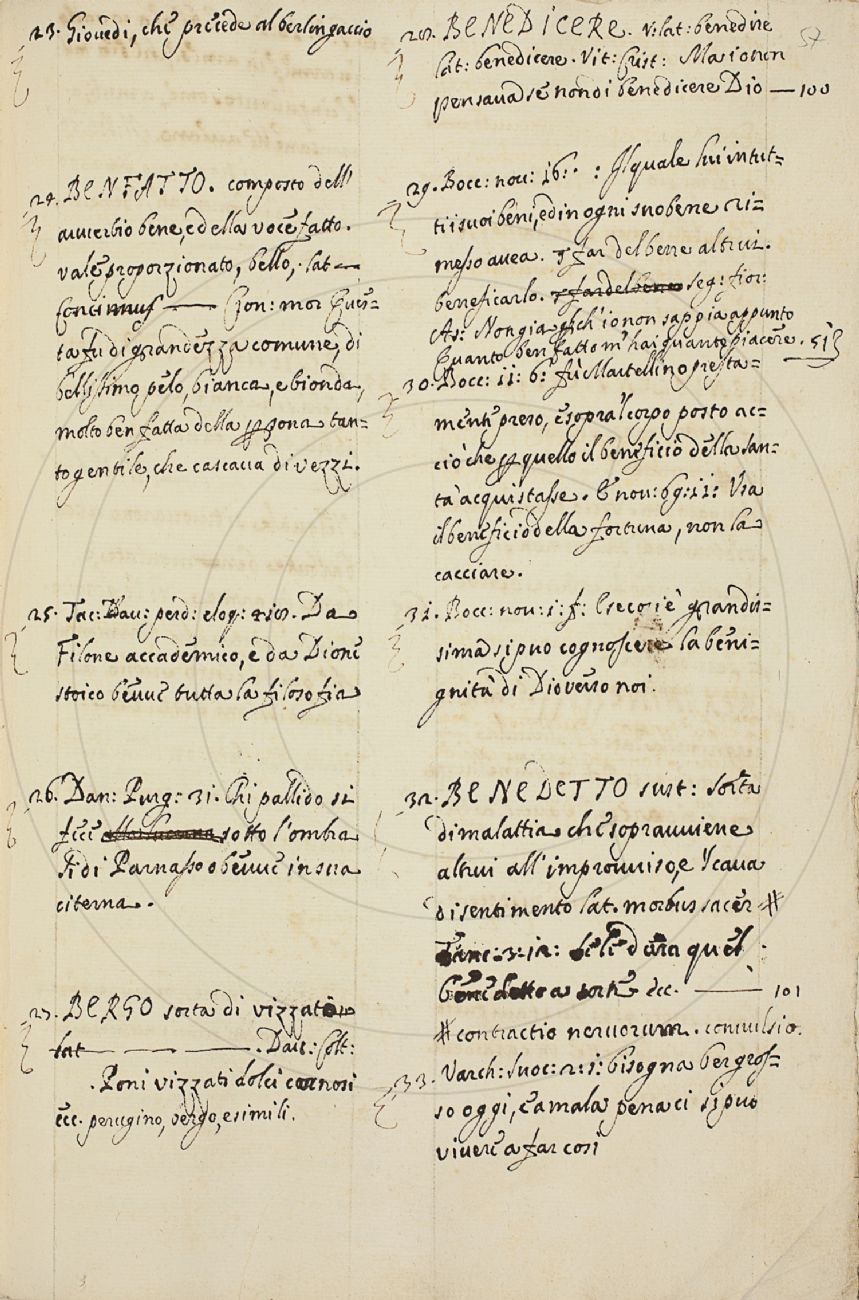 23. Giovedì, che precede al berlingaccio
24. BENFATTO. composto dell'
avverbio bene, e della voce fatto.
vale proporzionato, bello, lat
Concinnus Cron: mor Ques=
ta fu di grandezza comune, di
bellissimo pelo, bianca, e bionda,
molto ben fatta della psona tan=
to gentile, che cascava di vezzi.
25. Tac: Dav: perd: eloq: 418. Da
Filone accademico, e da Dione
stoico bevve tutta la filosofia
26. Dan: Purg: 31. Chi pallido si
fece sotto l'ombra
Sì di Parnasso o bevve in sua
citerna.
27. BERGO sorta di vizzato
lat . Dav: Colt:
. Poni vizzati dolci carnosi
ecc. perugino, bergo, e simili.
57
28. BENEDICERE. v: lat: benedire
lat: benedicere. Vit: Crist: Ma io non
pensava se non di benedicere Dio — 100
29. Bocc: nov: 16: : Il quale lui in tut=
ti i suoi beni, ed in ogni suo bene ri=
messo avea. far del bene altrui.
beneficarlo. seg: fior:
As: Non già pch'io non sappia appunto
Quanto ben fatto m'hai quanto piacere. 51
30. Bocc: 11: 6: fù Martellino presta=
mente preso, e sopra 'l corpo posto ac=
ciò che p quello il beneficio della san=
tà acquistasse. E nov: 69: 11: Usa
il beneficio della fortuna, non la
cacciare.
31. Bocc: nov: 1: f: E se così è grandis=
sima si può cognoscere la beni=
gnità di Dio verso noi.
32. BENEDETTO sust: Sorta
di malattia che sopravviene
altrui all'improvviso, e 'l cava
di sentimento lat. morbus sacer #
Tanc: 3: 12: se le dura quel
benedetto a sorte ecc. — 101
# contractio nervorum. convulsio.
33. Varch: Suoc: 2: 1: bisogna ber gros=
so oggi, e a mala pena ci si può
vivere a far così